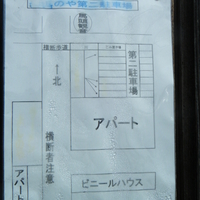 のや第二駐車場
馬頭観音
横断歩道
←北
第二駐車場
アパート
横断者注意
アパート
ビニールハウス